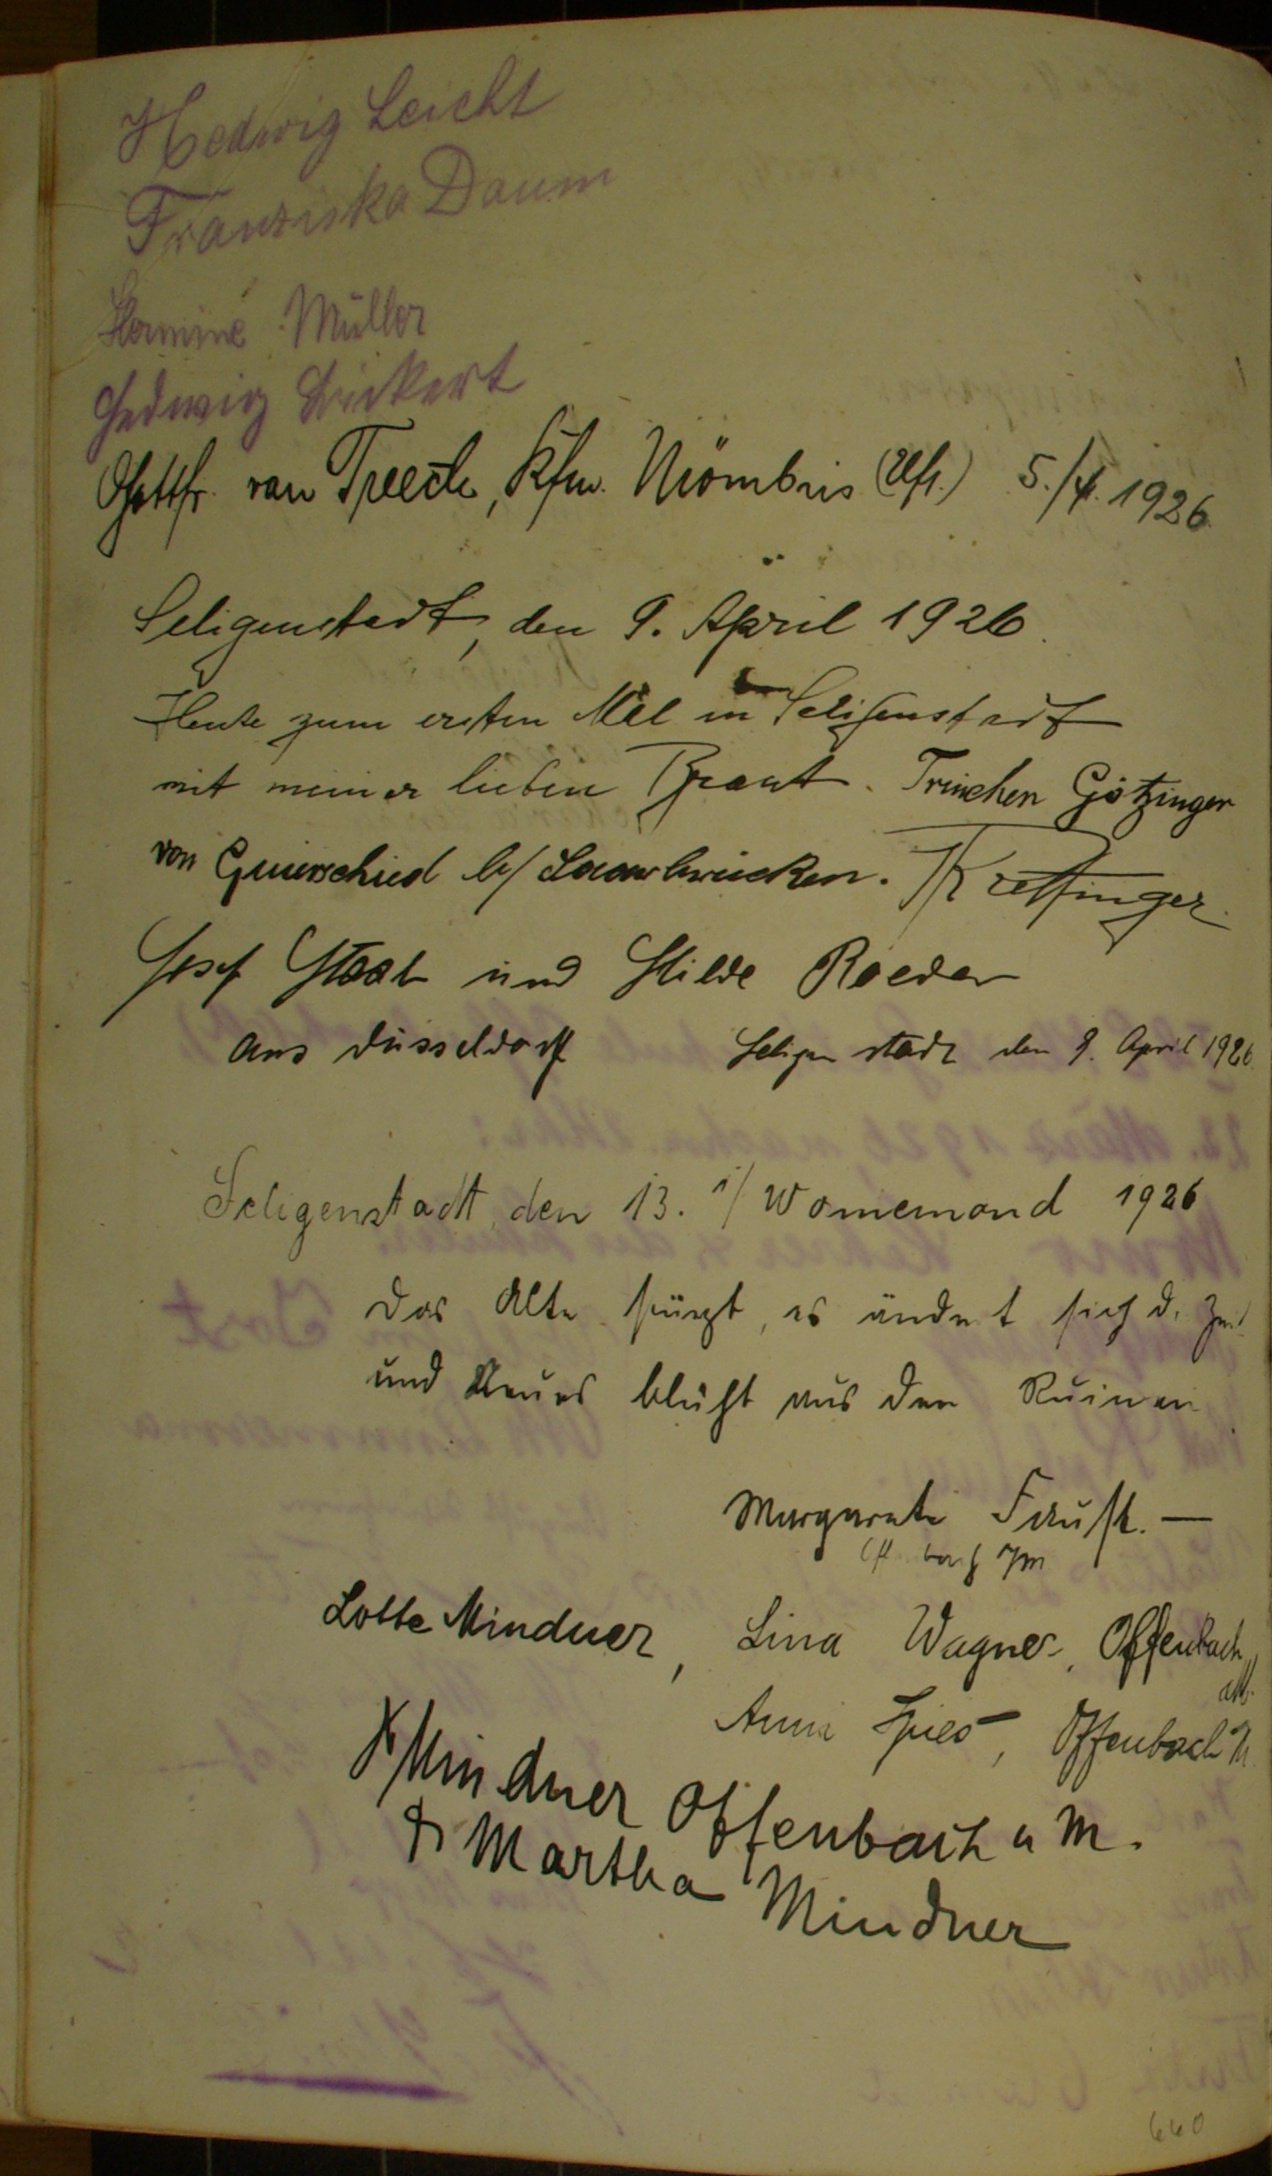 Hedwig Leicht
Franziska Daum
Hermine Müller
Hedwig Bickert
Gottfr. van Treeck, Kfm. Mömbris (Ufr.) 5./4. 1926
Seligenstadt, den 9. April 1926.
Heute zum ersten Mal in Seligenstadt
mit meiner lieben Braut. Trinchen Götzinger
von Guierschied b/ Saarbrücken.
Josef Staab und Hilde Roeder
aus Düsseldorf Seligenstadt den 9. April 1926
Seligenstadt, den 13. i/ Wonnemond 1926
Das Alte stürzt, es ändert sich d. Zeit
und Neues blüht aus den Ruinen
Margarete Faust. —
Offenbach a/M
Lotte Mindner, Lina Wagner, Offenbach
a/M.
Anni Spies, Offenbach M.
Mindner Offenbach a M.
Martha Mindner
660